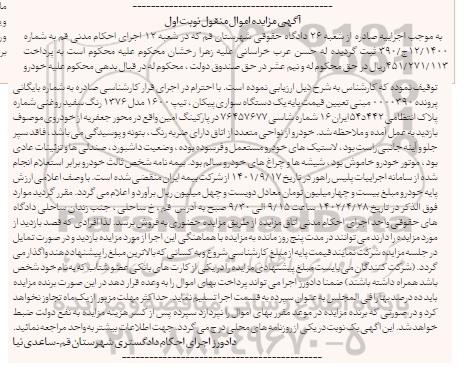 آگهی مزایده اموال منقول نوبت اول
به موجب اجراییه صادره از شعبه ۲۶ دادگاه حقوقی شهرستان قم که در شعبه ۱۲ اجرای احکام مدنی قم به شماره
۱۲/۱۴۰۰ج/۳۹۰ ثبت گردیده له حسن عرب خراسانی علیه زهرا رخشان محکوم علیه محکوم است به پرداخت
۴۵۱/۲۷۱/۱۱۳ریال در حق محکوم له و نیم عشر در حق صندوق دولت ، محکوم له در قبال بدهی محکوم علیه خودرو
توقیف نموده که کارشناس به شرح ذیل ارزیابی نموده است. با احترام در اجرای قرار کارشناسی صادره به شماره بایگانی
پرونده ۰۰۰۰۳۹۰ مبنی تعیین قیمت پایه یک دستگاه سواری پیکان ، تیپ ۱۶۰۰ مدل ۱۳۷۶ رنگ سفید روغنی شماره
پلاک انتظامی ۴۴۲د۵۴ایران۱۶ شماره شاسی ۷۶۴۵۷۶۷۷ در پارکینگ امین واقع در محور جعفریه از خودروی موصوف
بازدید به عمل آمده و ملاحظه شد. خودرو از نواحی متعدد از اتاق دارای ضربه رنگ ، بتونه و پوسیدگی می باشد، فاقد سپر
جلو و آینه جانبی راست بود ، لاستیک های خودرو مستعمل و فرسوده بوده ، وضعیت داشبورد ، صندلی ها و تزئینات عادی
بود ، موتور خودرو خاموش بود ، شیشه ها و چراغ های خودرو سالم بود. بیمه نامه شخص ثالث خودرو برابر استعلام انجام
شده از سامانه اجراییات پلیس راهور در تاریخ ۱۴۰۱/۹/۱۷ از شرکت بیمه ایران منقضی شده است. با وصف اعلامی ارزش
پایه خودرو مبلغ بیست و چهار میلیون تومان معادل دویست و چهل میلیون ریال برآورد و اعلام می گردد. مقرر گردید موارد
فوق الذکر در تاریخ ۱۴۰۲/۴/۲۸ ساعت ۹/۱۵ الی ۹/۳۰ صبح به آدرس قم ، خ ساحلی ، جنب زندان ساحلی دادگاه
های حقوقی واحد اجرای احکام مدنی اتاق مزایده از طریق مزایده حضوری به فروش برسد. لذا افرادی که قصد بازدید از
مورد مزایده را دارند می توانند در مدت پنج روز مانده به مزایده با هماهنگی این اجرا از مورد مزایده بازدید و در صورت تمایل
در جلسه مزایده شرکت نمایند قیمت پایه از مبلغ کارشناسی شروع و به کسانی که بالاترین مبلغ را پیشنهاد دهند واگذار می
گردد. (شرکت کنندگان می بایست مبلغ پیشنهادی مزایده را در یکی از کارت های بانکی عضو شتاب که به نام خود شخص
باشد همراه داشته باشند) ضمنا دادورز اجرا می تواند پرداخت بهای اموال را به وعده قرار دهد در این صورت برنده مزایده
باید ده درصد بها را فی المجلس به عنوان سپرده به قسمت اجرا تسلیم نماید. حداکثر مهلت مزبور از یک ماه تجاوز نخواهد
کرد و در صورتی که برنده مزایده در موعد مقرر بهای اموال را نپردازد سپرده پس از کسر هزینه مزایده به نفع دولت ضبط
خواهد شد. این آگهی یک نوبت در یکی از روزنامه های محلی درج می گردد. جهت اطلاعات بیشتر به واحد مراجعه نمائید.
دادورز اجرای احکام دادگستری شهرستان قم-ساعدی نیا